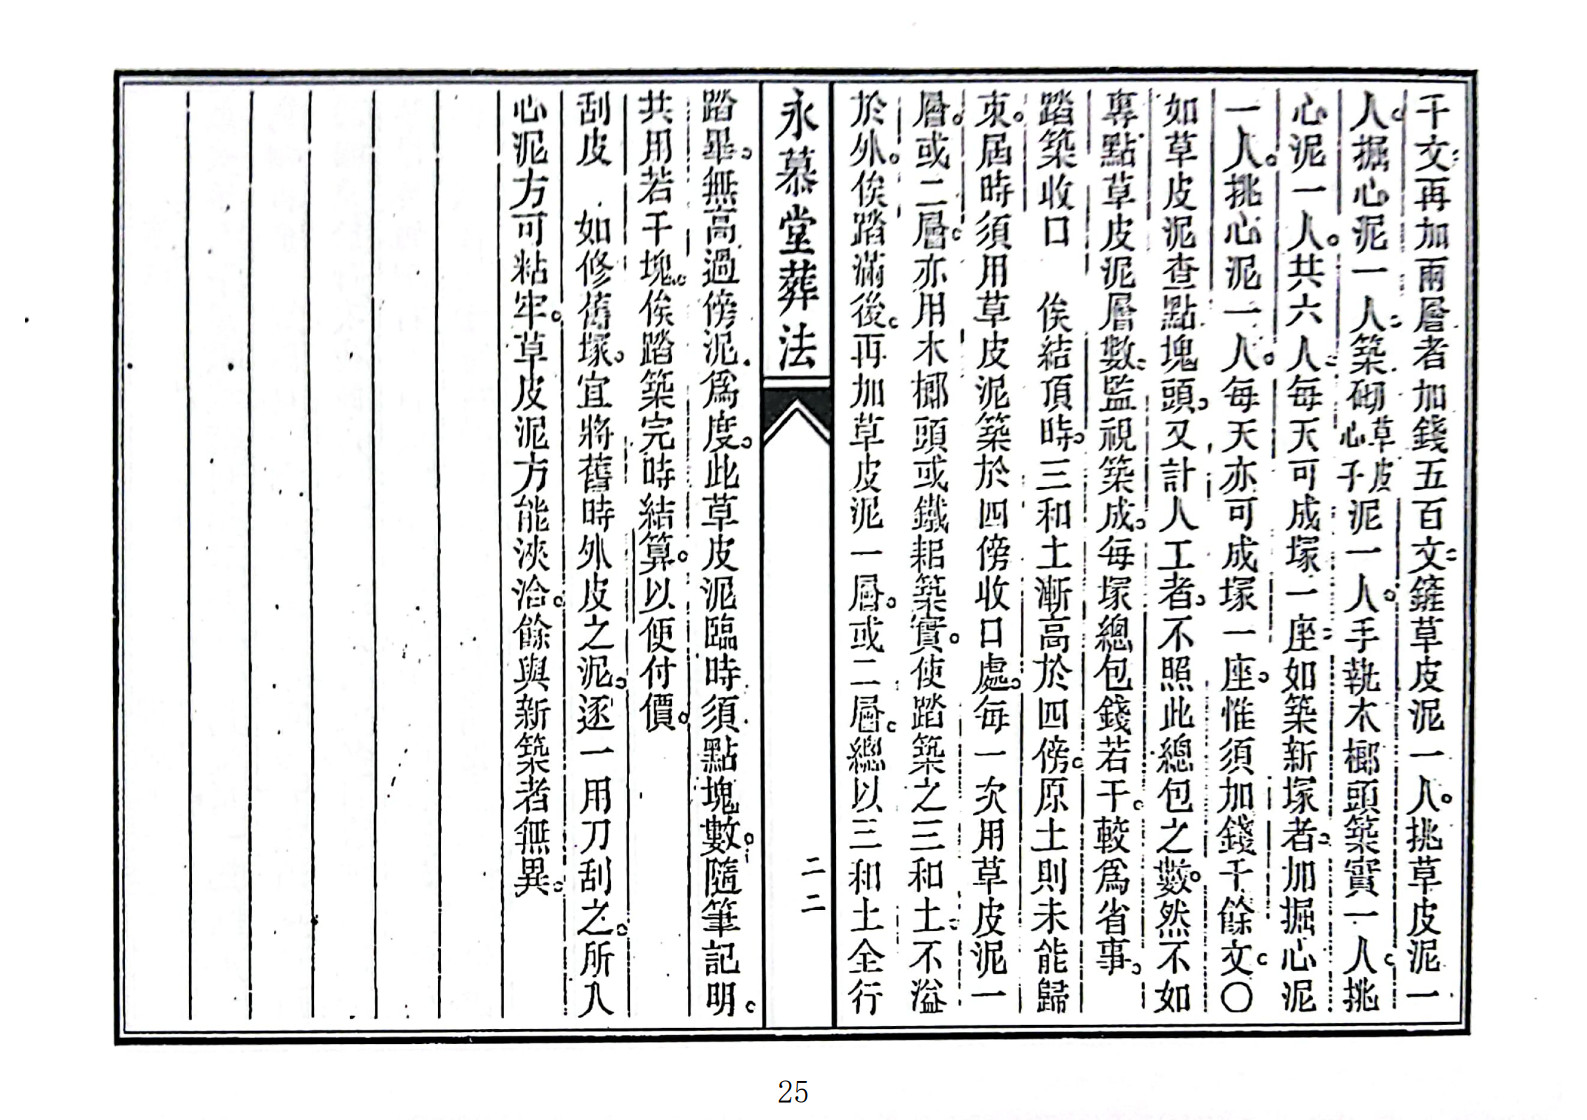 千文。再加兩層者加錢五百文。䥥草皮泥一人。挑草皮泥一
人。掘心泥一人。築砌草皮心子泥一人。手執木榔頭築實一人。挑
心泥一人。共六人。每天可成塚一座。如築新塚者。加掘心泥
一人。挑心泥一人。每天亦可成塚一座。惟須加錢千餘文。〇
如草皮泥查點塊頭。又計人工者。不照此總包之數。然不如
專點草皮泥層數。監視築成。每塚總包錢若干。較爲省事。
踏築收口　俟結頂時。三和土漸高於四傍。原土則未能歸
束。屆時須用草皮泥築於四傍收口處。每一次用草皮泥一
層。或二層。亦用木榔頭或鐵䎱築實。使踏築之三和土。不溢
於外。俟踏滿後。再加草皮泥一層。或二層。總以三和土全行
永慕堂葬法
二二
踏畢。無高過傍泥。爲度。此草皮泥臨時須點塊數。隨筆記明。
共用若干塊。俟踏築完時結算。以便付價。
刮皮　如修舊塚。宜將舊時外皮之泥。逐一用刀刮之。所入
心泥方可粘牢。草皮泥方能浹洽。餘與新築者無異。
25